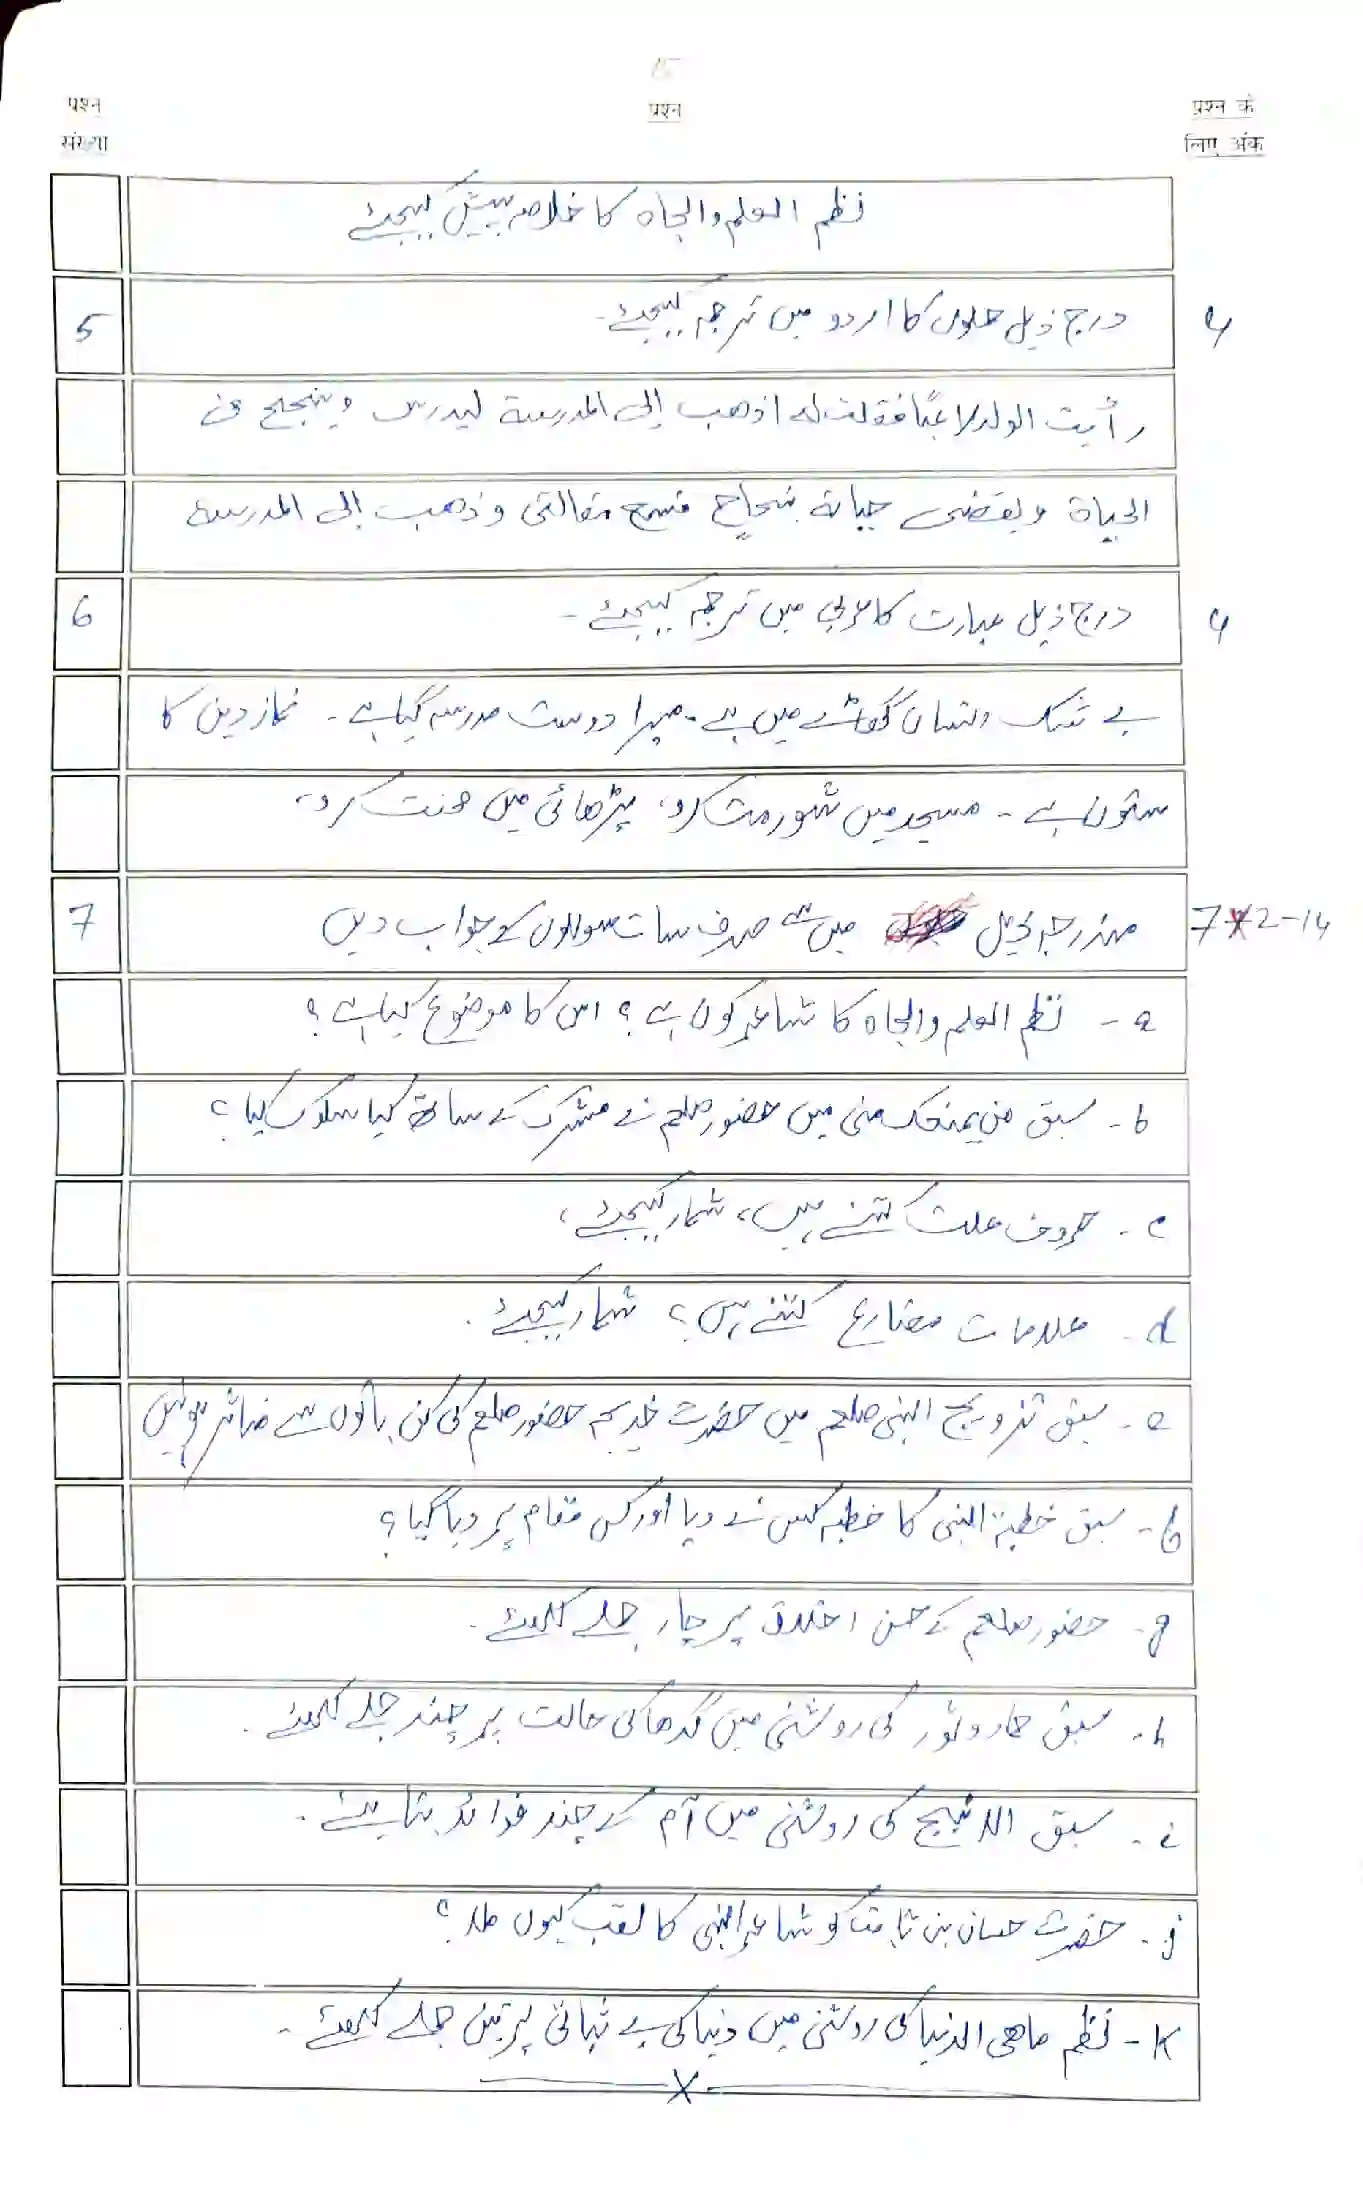 प्रश्न
संख्या
प्रश्न
प्रश्न के
लिए अंक
نظم العلم والجاہ کا خلاصہ پیش کیجئے
5 درج ذیل جملوں کا اردو میں ترجمہ کیجئے۔ 4
رأیت الولد لاعبًا فقلت لہ اذھب إلی المدرسة لیدرس وینجح فی
الحیاة ویقضی حیاتہ بنجاحٍ فسمع مقالتی وذھب إلی المدرسة
6 درج ذیل عبارت کا عربی میں ترجمہ کیجئے۔ 4
بے شک انسان گھاٹے میں ہے۔ میرا دوست مدرسہ گیا ہے۔ نماز دین کا
ستون ہے۔ مسجد میں شور مت کرو، پڑھائی میں محنت کرو،
7 مندرجہ ذیل میں سے صرف سات سوالوں کے جواب دیں 7×2-14
a - نظم العلم والجاہ کا شاعر کون ہے؟ اس کا موضوع کیا ہے؟
b - سبق من یمنعک منی میں حضور صلعم نے مشرک کے ساتھ کیا سلوک کیا؟
c - حروف علت کتنے ہیں، شمار کیجئے،
d - علامات مضارع کتنے ہیں؟ شمار کیجئے۔
e - سبق تزویج النبی صلعم میں حضرت خدیجہ حضور صلعم کی کن باتوں سے متاثر ہوئیں
f - سبق خطبة النبی کا خطبہ کس نے دیا اور کس مقام پر دیا گیا؟
g - حضور صلعم کے حسن اخلاق پر چار جملے لکھئے۔
h - سبق حمار وثور کی روشنی میں گدھا کی حالت پر چند جملے لکھئے۔
i - سبق الانبج کی روشنی میں آم کے چند فوائد بتایئے۔
j - حضرت حسان بن ثابت کو شاعر النبی کا لقب کیوں ملا؟
K - نظم ماھی الدنیا کی روشنی میں دنیا کی بے ثباتی پر تین جملے لکھئے۔
X